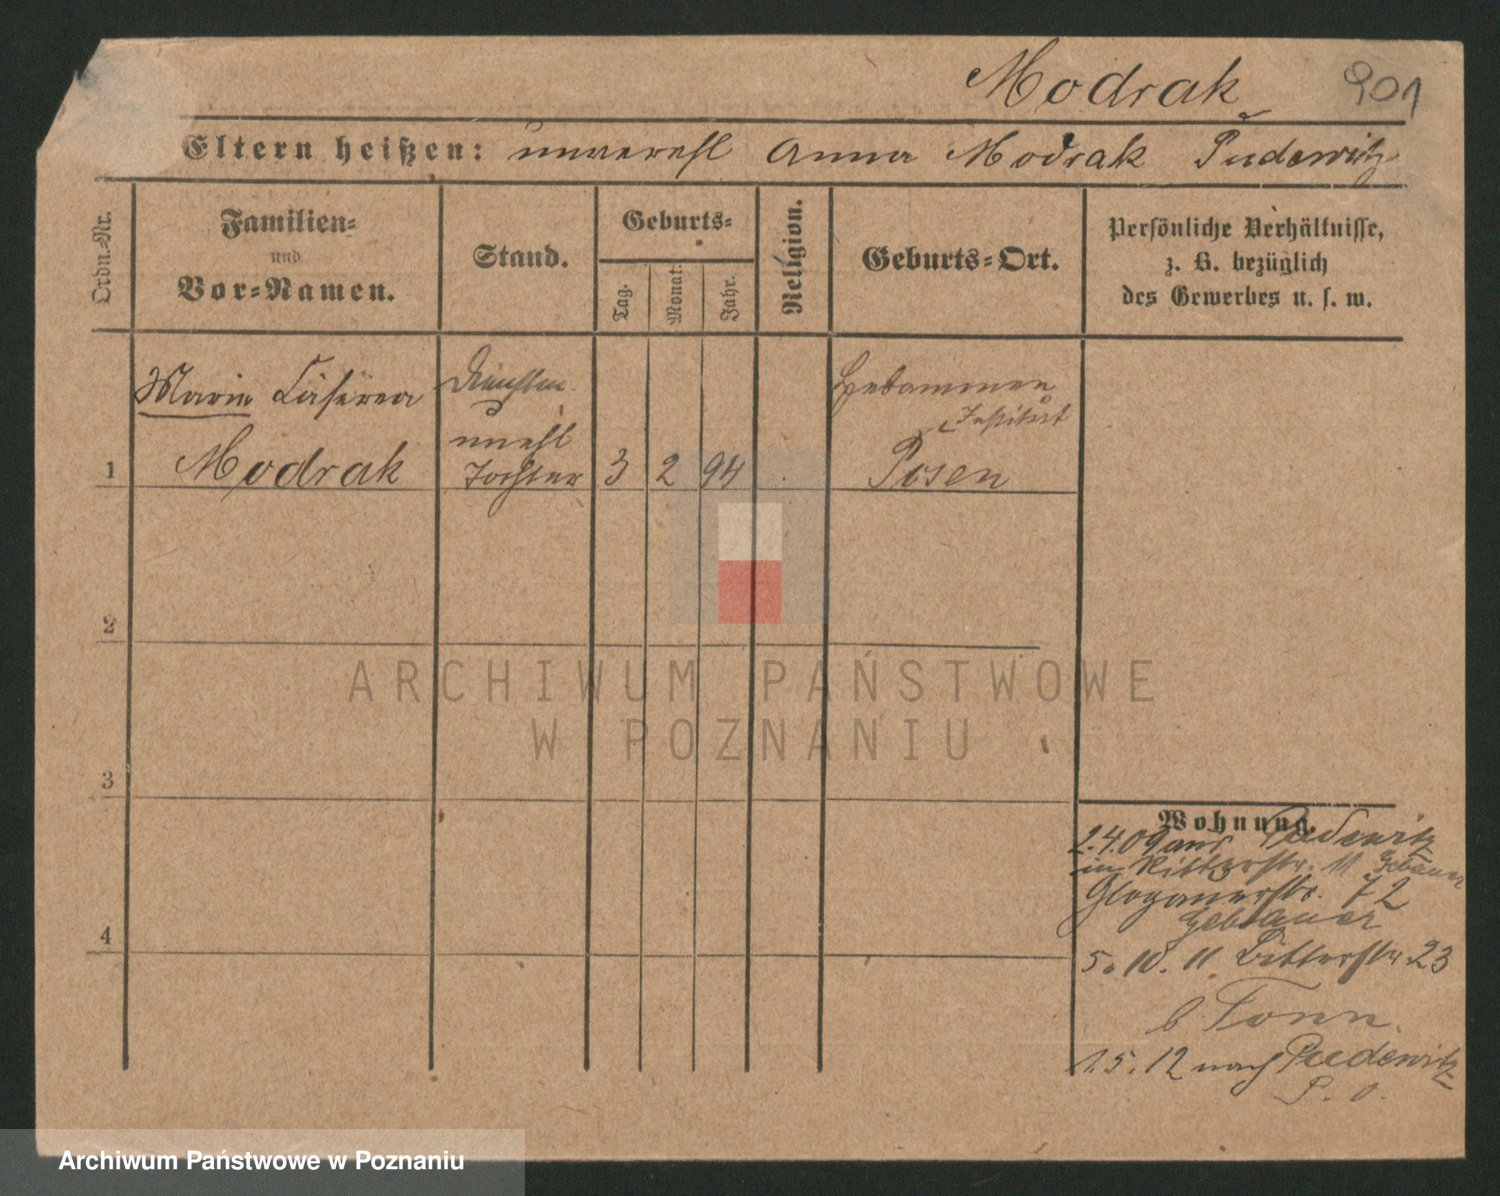 Modrak 901
Eltern heißen: unverehl Anna Modrak Pudewitz
Ordn.-Nr.
Familien-
und
Vor-Namen.
Stand.
Geburts-
Tag.
Monat.
Jahr.
Religion.
Geburts-Ort.
Persönliche Verhältnisse,
z. B. bezüglich
des Gewerbes u. s. w.
Marie
Modrak
unehl
Tochter
1
3 2 94
Hebammen
Institut
Posen
2
3
4
Wohnung.
2.4.09 aus Pudewitz
in Ritterstr. 11 Gebauer
Glogauerstr. 72
Gebauer
5.10.11 Ritterstr. 23
b Tonn.
1.5.12 nach Pudewitz
P. O.
ARCHIWUM PAŃSTWOWE
W POZNANIU
Archiwum Państwowe w Poznaniu